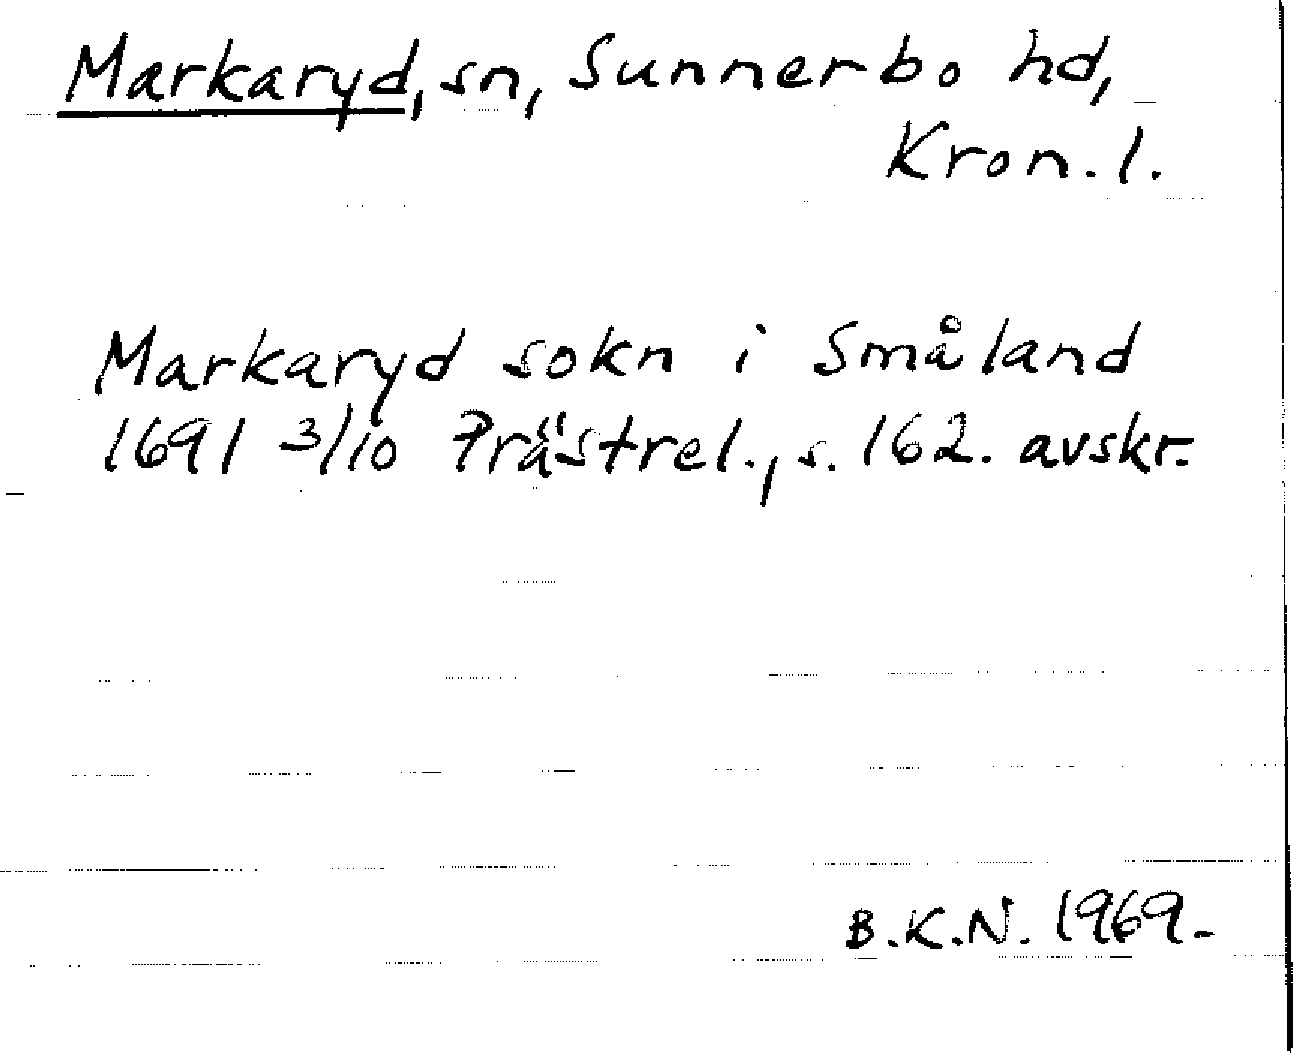 Markaryd, sn, Sunnerbo hd,
Kron. l.
Markaryd sokn i Småland
1691 3/10 Prästrel., s. 162. avskr.
B.K.N. 1969.